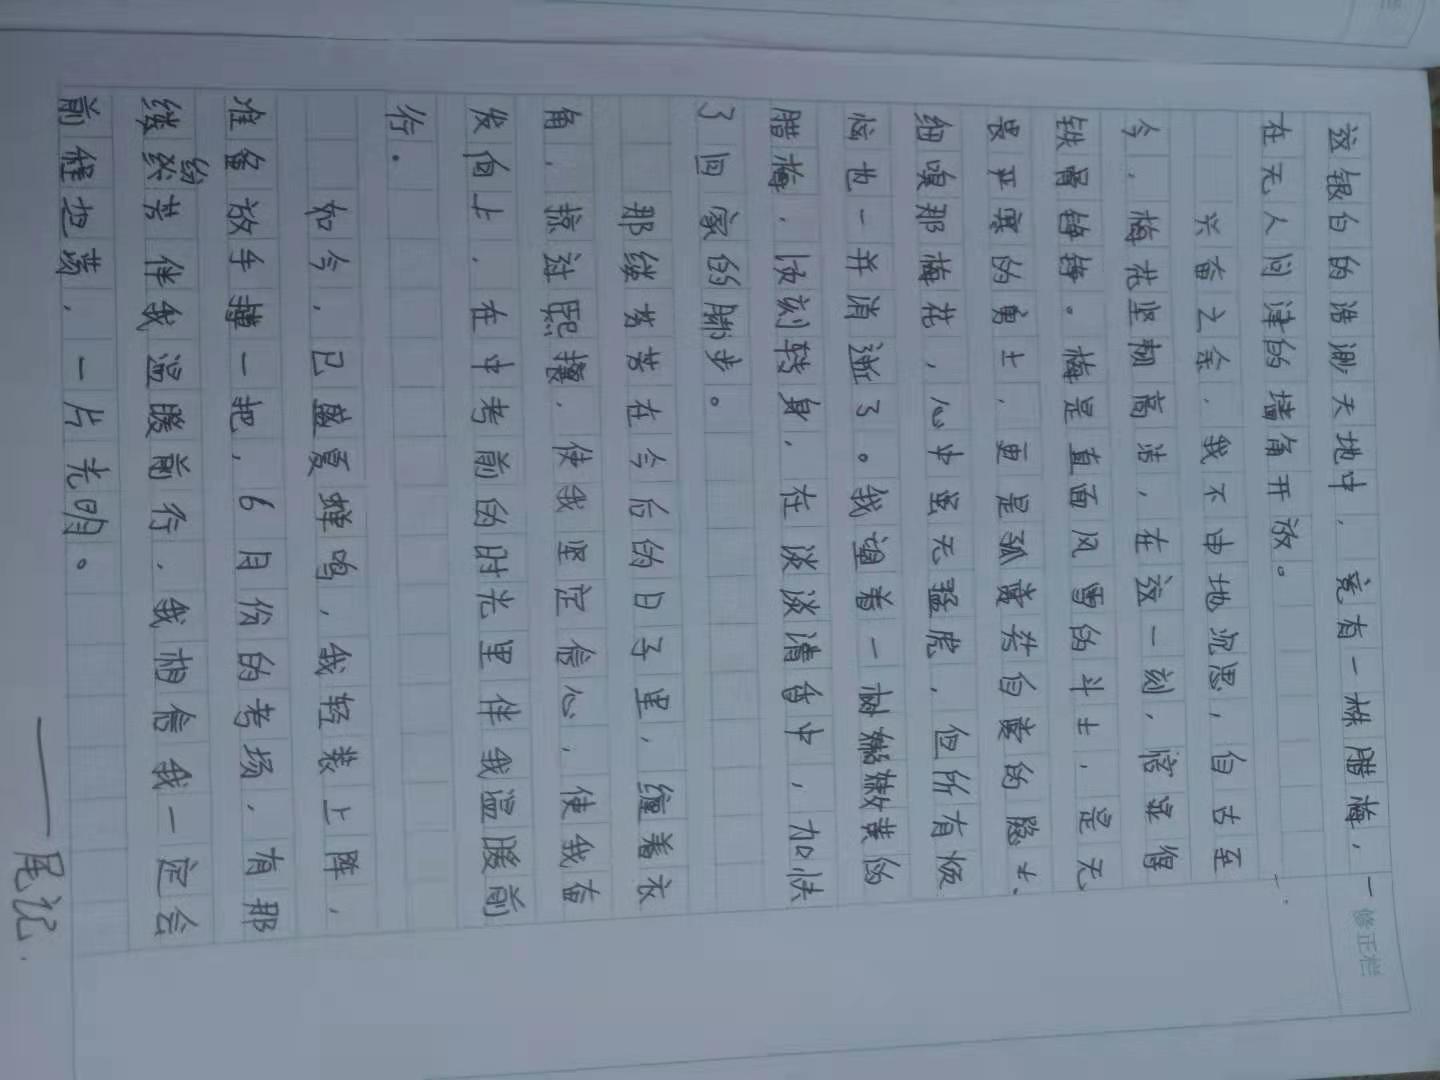 这银白的浩渺天地中，竟有一株腊梅，一
在无人问津的墙角开放。
兴奋之余，我不由地沉思，自古至
今，梅花坚韧高洁，在这一刻，倍显得
铁骨铮铮。梅是直面风雪的斗士，是无
畏严寒的勇士，更是孤芳自赏的隐士、
细嗅那梅花，心中虽无猛虎，但所有烦
恼也一并消逝了。我望着一树嫩黄的
腊梅，顷刻转身，在淡淡清香中，加快
了回家的脚步。
那缕芬芳在今后的日子里，缠着衣
角，掠过熙攘，使我坚定信心，使我奋
发向上，在中考前的时光里伴我温暖前
行．
如今，已盛夏蝉鸣，我轻装上阵，
准备放手搏一把，6月份的考场，有那
缕芬芳伴我温暖前行．我相信我一定会
前程也漫，一片光明。
——尾记．
修正栏